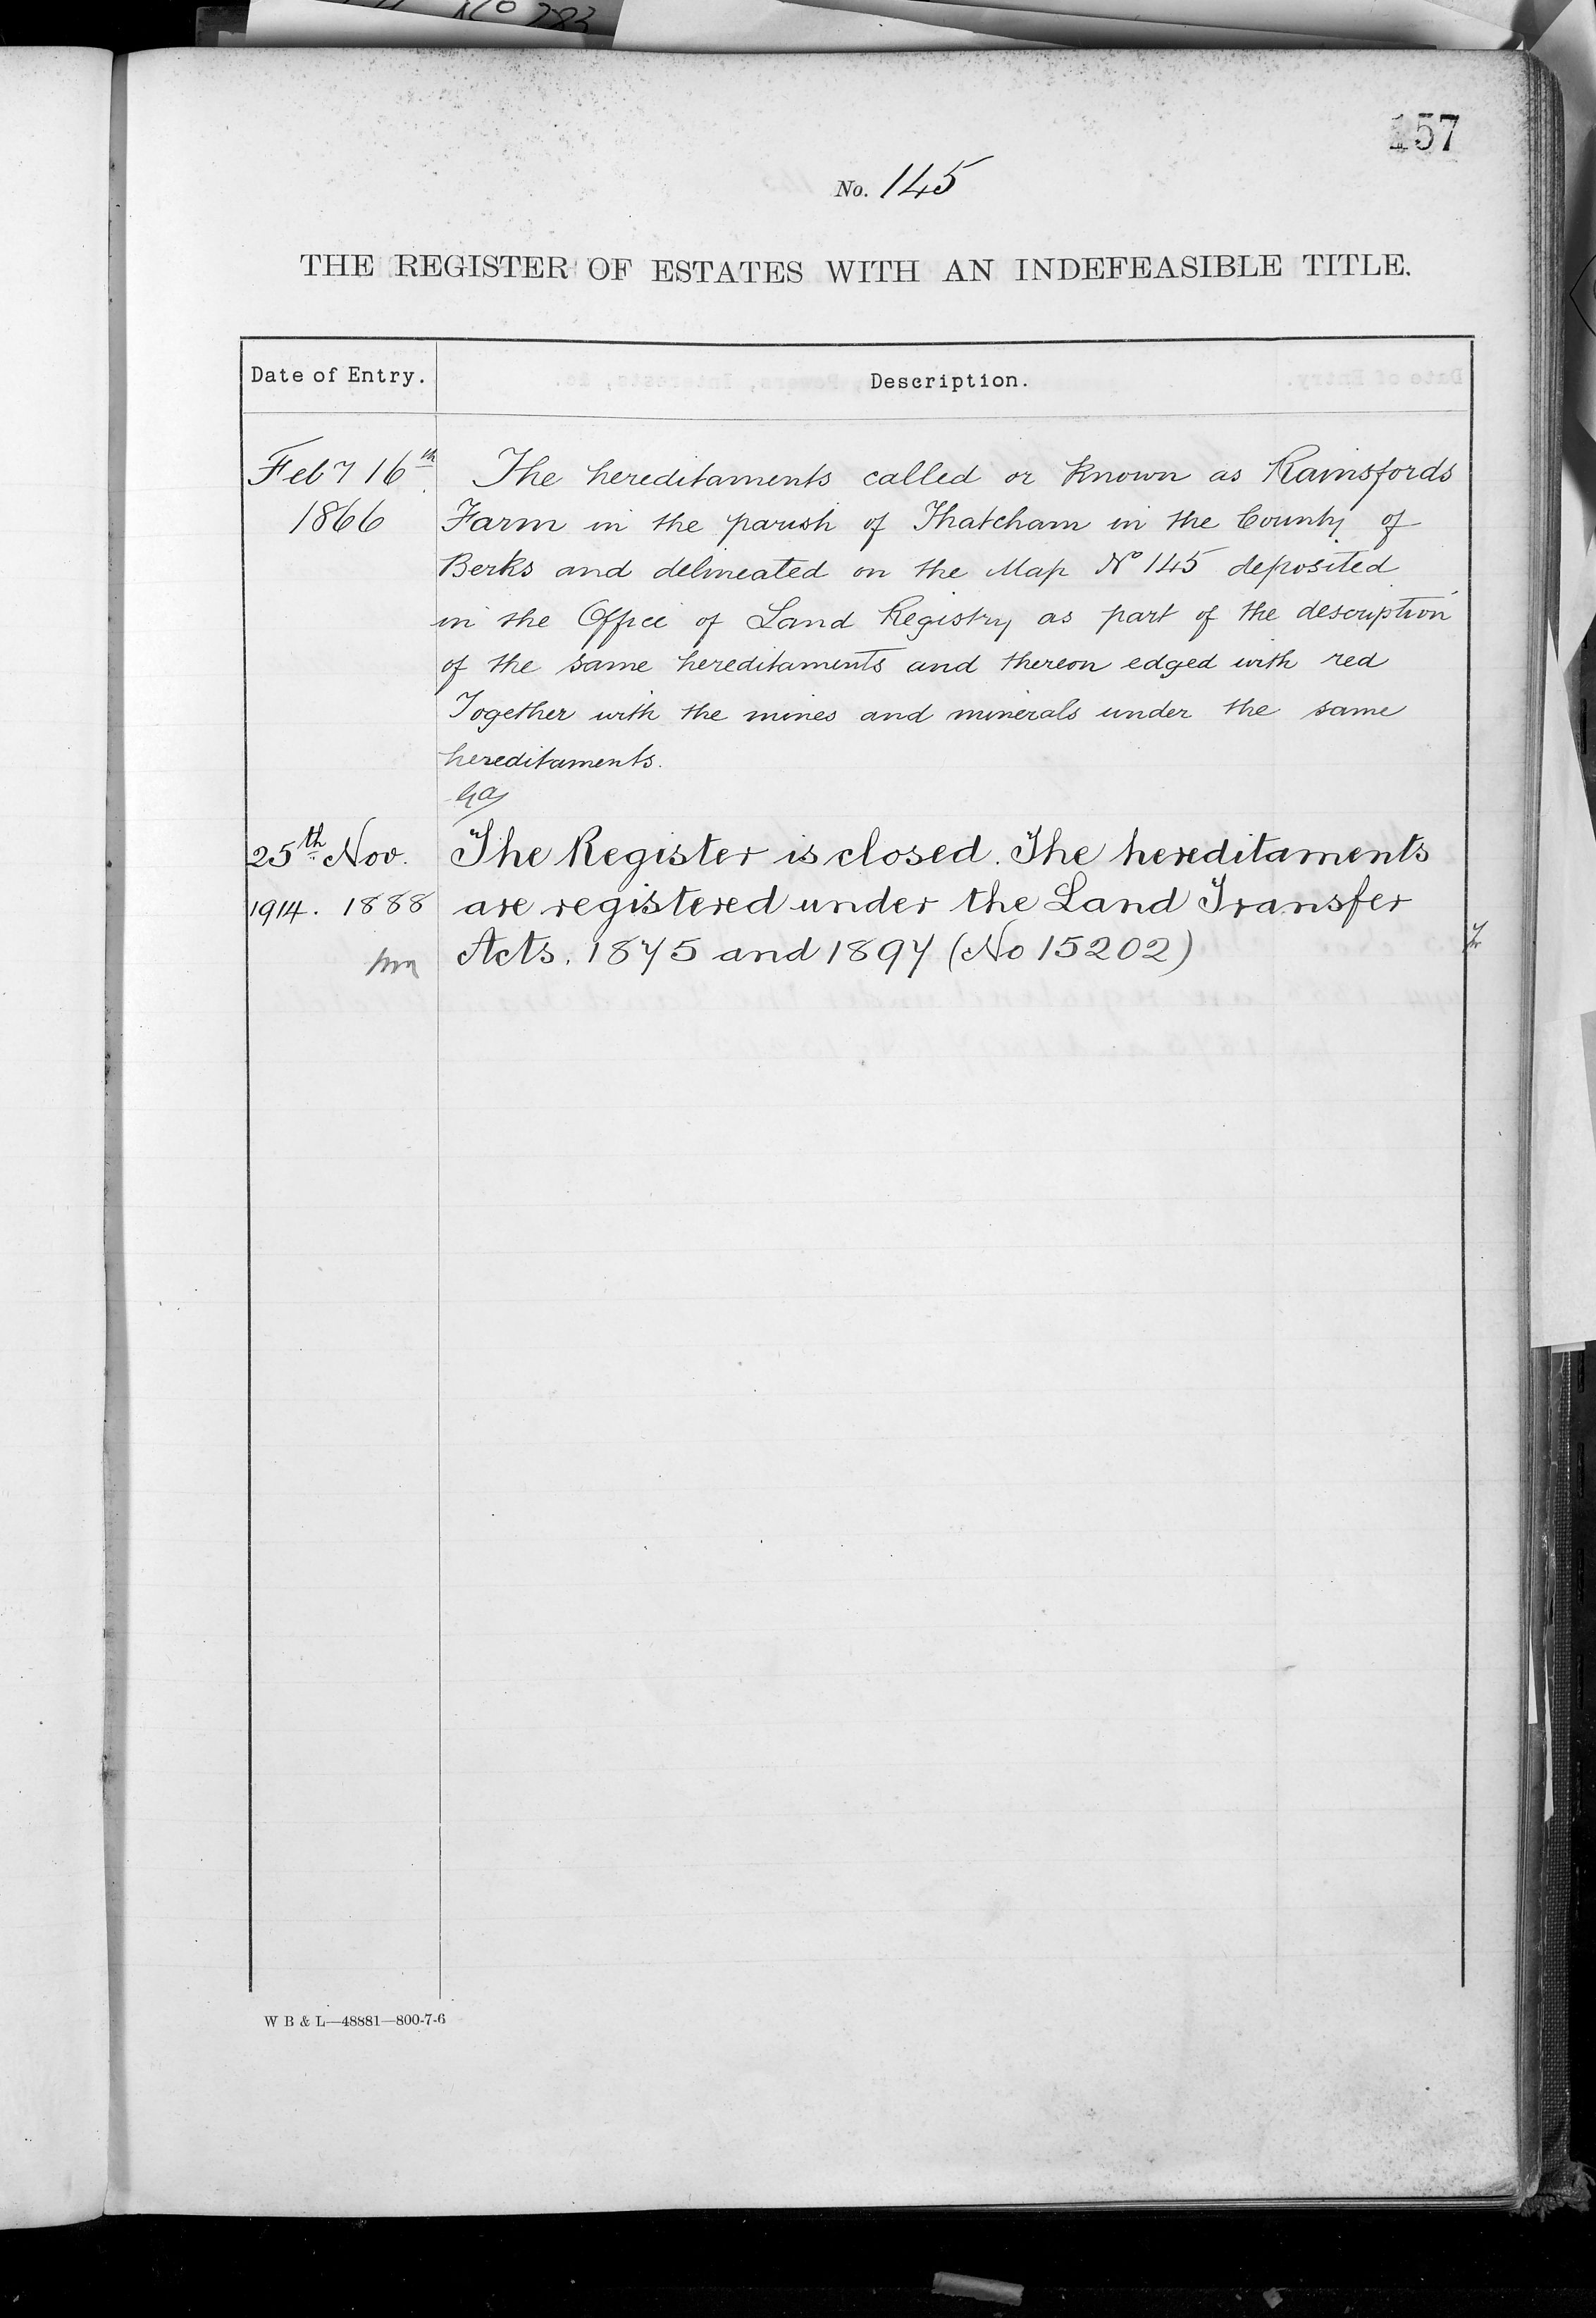 No 283
157
No. 145
THE REGISTER OF ESTATES WITH AN INDEFEASIBLE TITLE.
Date of Entry. Description.
Feby 16th The hereditaments called or known as Rainsfords
1866 Farm in the parish of Thatcham in the County of
Berks and delineated on the Map No 145 deposited
in the Office of Land Registry as part of the description
of the same hereditaments and thereon edged with red
Together with the mines and minerals under the same
hereditaments.
25th Nov. The Register is closed. The hereditaments
1914. 1888 are registered under the Land Transfer
Acts. 1875 and 1897 (No 15202)
W B & L—48881—800-7-6